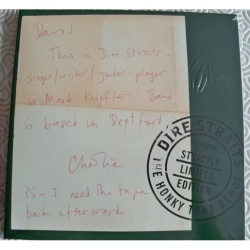 David
This is Dire Straits -
singer/writer/guitar-player
is Mark Knopfler. Band
is based in Deptford.
Charlie
PS - I need the tape
back afterward
DIRE STRAITS
STRICTLY
LIMITED
EDITION
THE HONKY TONK DEMOS